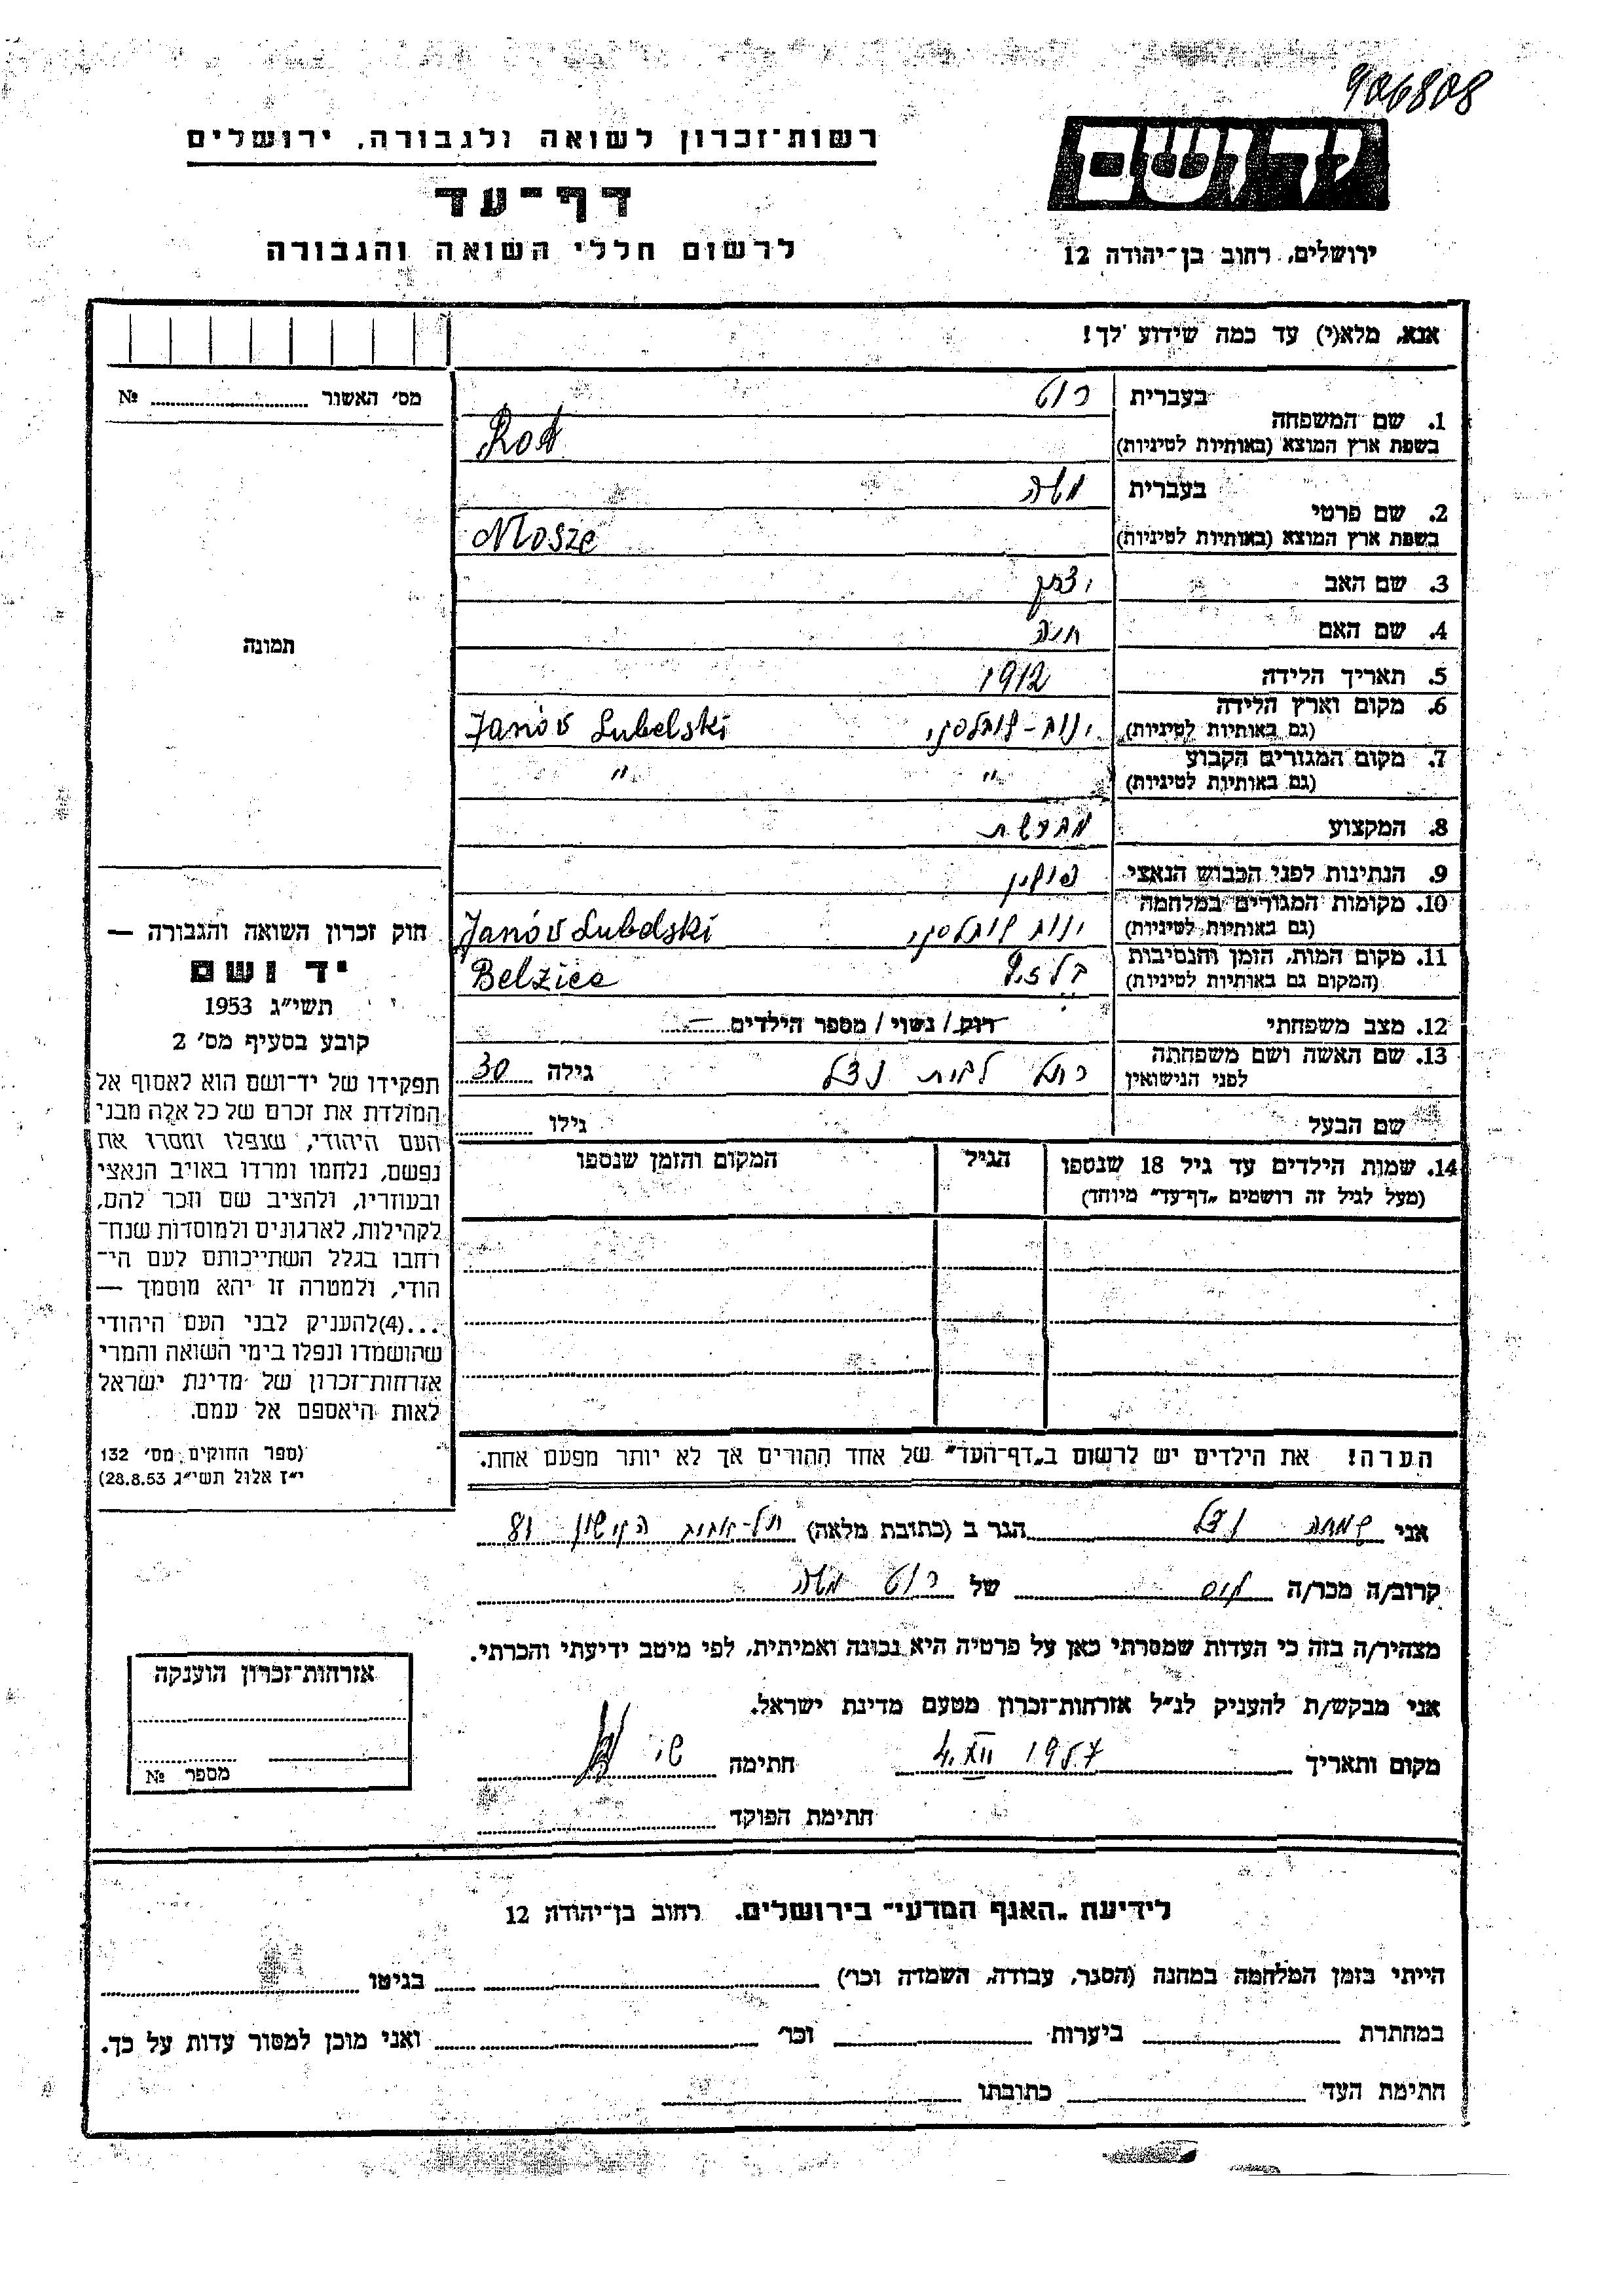 906808
רשות־זכרון לשואה ולגבורה, ירושלים
יד ושם
דף־עד
לרשום חללי השואה והגבורה
ירושלים, רחוב בן־יהודה 12
אנא, מלא(י) עד כמה שידוע לך!
מס׳ האשור № 
1. שם המשפחה בעברית רוט
בשפת ארץ המוצא (באותיות לטיניות) Rot
2. שם פרטי בעברית משה
בשפת ארץ המוצא (באותיות לטיניות) Mosze
3. שם האב יצחק
4. שם האם חנה
5. תאריך הלידה 1912
6. מקום וארץ הלידה
(גם באותיות לטיניות) ינוב-לובלסקי Janów Lubelski
7. מקום המגורים הקבוע
(גם באותיות לטיניות) " "
8. המקצוע
9. הנתינות לפני הכבוש הנאצי פולין
10. מקומות המגורים במלחמה
(גם באותיות לטיניות) ינוב לובלסקי Janów Lubelski
11. מקום המות, הזמן והנסיבות
(המקום גם באותיות לטיניות) Belziec
12. מצב משפחתי רוק/ נשוי/ מספר הילדים
13. שם האשה ושם משפחתה
לפני הנישואין רחל לבית נצל גילה 30
שם הבעל גילו
14. שמות הילדים עד גיל 18 שנספו הגיל המקום והזמן שנספו
(מעל לגיל זה רושמים „דף־עד" מיוחד)
הערה! את הילדים יש לרשום ב„דף־העד" של אחד ההורים אך לא יותר מפעם אחת.
תמונה
חוק זכרון השואה והגבורה —
יד ושם
תשי״ג 1953
קובע בסעיף מס׳ 2
תפקידו של יד־ושם הוא לאסוף אל
המולדת את זכרם של כל אלה מבני
העם היהודי, שנפלו ומסרו את
נפשם, נלחמו ומרדו באויב הנאצי
ובעוזריו, ולהציב שם וזכר להם,
לקהילות, לארגונים ולמוסדות שנח־
רבו בגלל השתייכותם לעם הי־
הודי, ולמטרה זו יהא מוסמך —
...(4)להעניק לבני העם היהודי
שהושמדו ונפלו בימי השואה והמרי
אזרחות־זכרון של מדינת ישראל
לאות היאספם אל עמם.
(ספר החוקים מס׳ 132
י״ז אלול תשי״ג 28.8.53)
אני שמחה נצל הגר ב (כתובת מלאה) תל-אביב 81
קרוב/ה מכר/ה גיס של רוט משה
מצהיר/ה בזה כי העדות שמסרתי כאן על פרטיה היא נכונה ואמיתית, לפי מיטב ידיעתי והכרתי.
אני מבקש/ת להעניק לנ״ל אזרחות־זכרון מטעם מדינת ישראל.
מקום ותאריך 4.XII 1957 חתימה
חתימת הפוקד
אזרחות־זכרון הוענקה
מספר №
לידיעת „האגף המדעי" בירושלים, רחוב בן־יהודה 12
הייתי בזמן המלחמה במחנה (הסגר, עבודה, השמדה וכו׳) בגיטו
במחתרת ביערות וכו׳ ואני מוכן למסור עדות על כך.
חתימת העד כתובתו